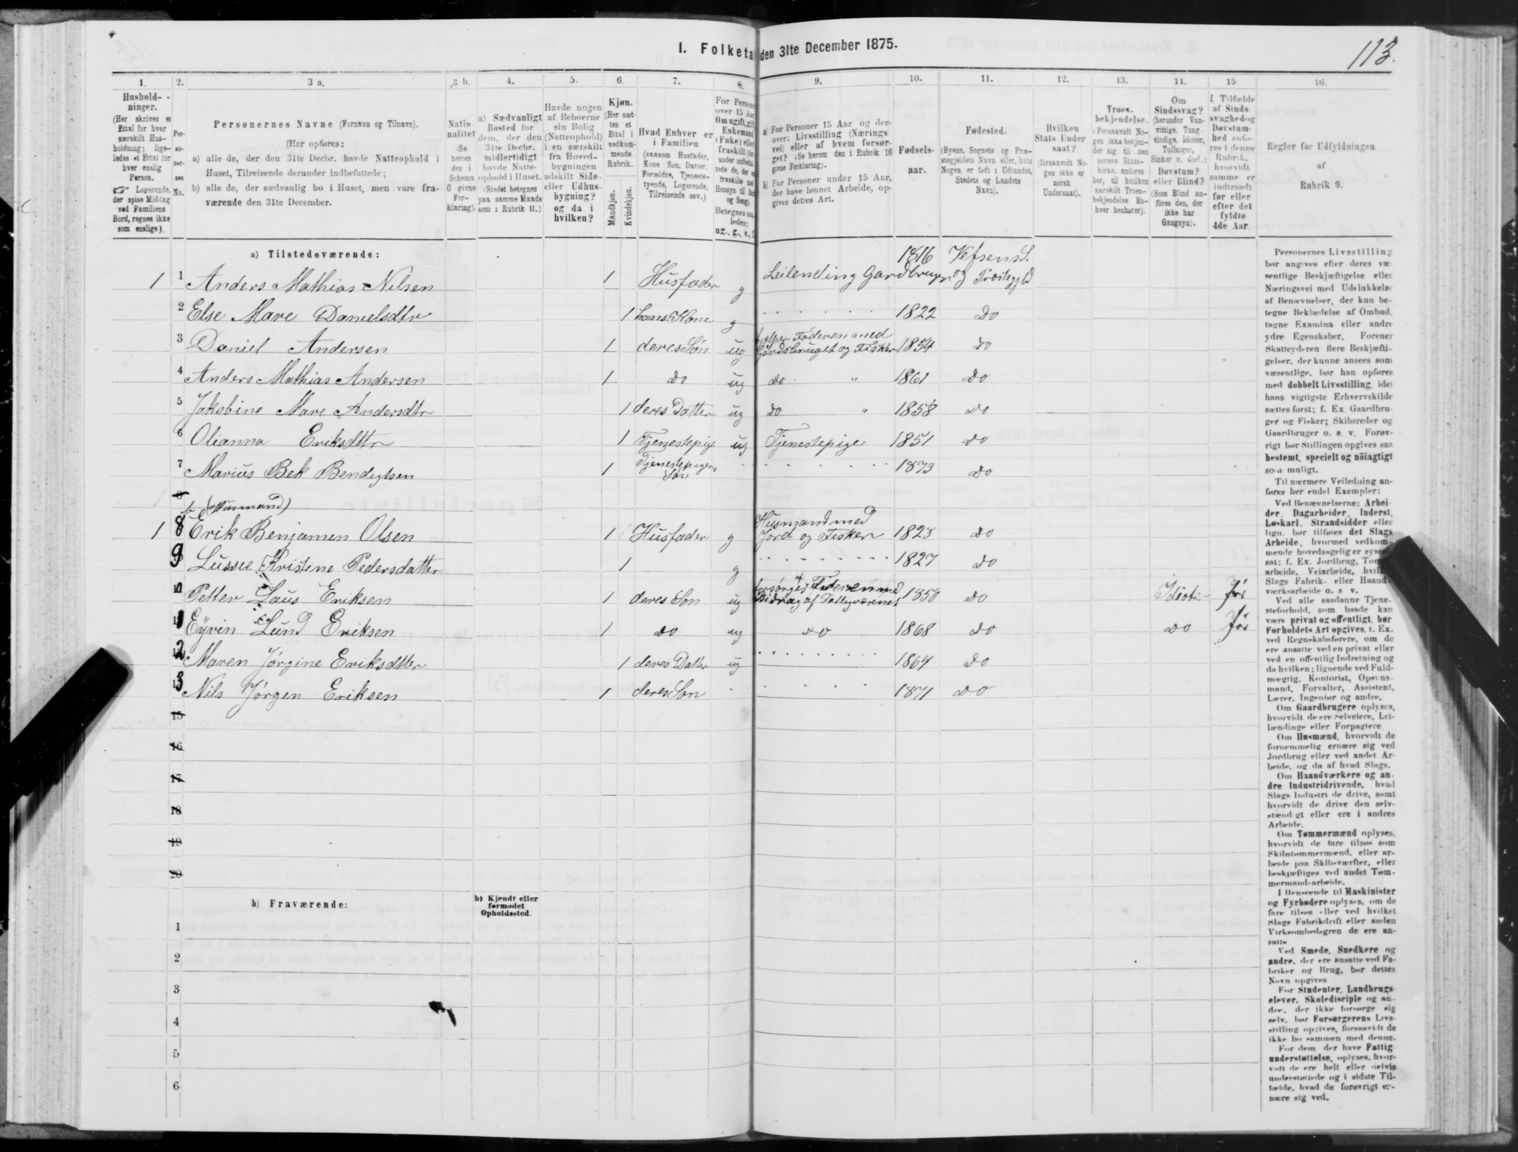 113.
I. Folketal den 31te December 1875.
1.
2.
3 a.
3 b.
4.
5.
6.
7.
8.
9.
10.
11.
12.
13.
14.
15
16.
Hushold-
ninger.
(Her skrives et
Ettal for hver
særskilt Hus-
holdning; lige-
ledes et Ettal for
hver enslig
Person.
☞ Logerende,
der spise Middag
ved Familiens
Bord, regnes ikke
som enslige).
Per-
so-
ner-
nes
No.
Personernes Navne (Fornavn og Tilnavn).
(Her opføres:
a) alle de, der den 31te Decbr. havde Natteophold i
Huset, Tilreisende derunder indbefattede;
b) alle de, der sædvanlig bo i Huset, men vare fra-
værende den 31te December.
Natio-
nalitet
(Se
herom
den i
Schema
0 givne
For-
klaring).
a) Sædvanligt
Bosted for
dem, der den
31te Decbr.
midlertidigt
havde Natte-
ophold i Huset.
(Stedet betegnes
paa samme Maade
som i Rubrik 11.)
Havde nogen
af Beboerne
sin Bolig
(Natteophold)
i en særskilt
fra Hoved-
bygningen
adskilt Side-
eller Udhus-
bygning?
og da i
hvilken?
Kjøn.
(Her sæt-
tes et
Ettal i
vedkom-
mende
Rubrik.
Mandkjøn.
Kvindekjøn.
Hvad Enhver er
i Familien
(saasom Husfader,
Kone, Søn, Datter,
Forældre, Tjeneste-
tyende, Logerende,
Tilreisende osv.)
For Personer
over 15 Aar:
Om ugift, gift,
Enkemand
(Enke) eller
fraskilt
ug., g., e., f.
a) For Personer 15 Aar og der-
over: Livsstilling (Nærings
vei) eller af hvem forsør-
get? (Se herom den i Rubrik 16
givne Forklaring).
b) For Personer under 15 Aar,
der have lønnet Arbeide, op-
gives dettes Art.
Fødsels-
aar.
Fødested.
(Byens, Sognets og Præ-
stegjeldets Navn eller, hvis
Nogen er født i Udlandet,
Stedets og Landets
Navn).
Hvilken
Stats Under
saat?
(forsaavidt No-
gen ikke er
norsk
Undersaat).
Troes-
bekjendelse.
(Forsaavidt No-
gen ikke bekjen-
der sig til den
norske Stats-
kirke, anføres
her, til hvilken
særskilt Troes-
bekjendelse En-
hver henhører).
Om
Sindssvag?
(herunder Van-
vittige, Tung-
sindige, Idioter,
Tullinger,
Sinker o. desl.)
Døvstum?
eller Blind?
(Som Blind an-
føres den, der
ikke har
Gangsyn).
I Tilfælde
af Sinds-
svaghed og
Døvstum-
hed anfø-
res i denne
Rubrik,
hvorvidt
samme er
indtraadt
før eller
efter det
fyldte
4de Aar.
Regler for Udfyldningen
af
Rubrik 9.
a) Tilstedeværende:
1 1 Anders Mathias Nilsen 1 Husfader g Leilending Gardbruger 1816 Vefsens S. og Præstegjeld
2 Else Mare Danielsdtr 1 hans Kone g 1822 Do
3 Daniel Andersen 1 deres Søn ug hjelper Føderen med Gårdsbruget og Fisker 1854 do
4 Anders Mathias Andersen 1 do ug do " 1861 do
5 Jakobine Mare Andersdtr 1 deres Datter ug do " 1858 do
6 Olianna Eriksdttr 1 Tjenestepige ug Tjenestepige 1851 do
7 Marius Bek Bendigtsen 1 Tjenestepigens Søn 1873 do
8 (Husmand)
1 8 Erik Benjamen Olsen 1 Husfader g Husmand med Jord og Fisker 1823 do
9 Lussie Kristine Pedersdatter 1 g 1827 do
Petter Laus Eriksen 1 deres Søn ug forsørges af Føderen med Bidrag af Fattigvæsenet 1850 do Idiot Før
1 Eyvin Lund Eriksen 1 do ug do 1868 do do Før
2 Maren Jørgine Eriksdtter 1 deres Datter ug 1864 do
3 Nils Jørgen Eriksen 1 deres Søn 1871 do
15
16
17
18
19
20
b) Fraværende:
b) Kjendt eller
formodet
Opholdssted.
1
2
3
4
5
6
Personernes Livsstilling
bør angives efter deres væ-
sentlige Beskjæftigelse eller
Næringsvei med Udelukkelse
af Benævnelser, der kun be-
tegne Beklædelse af Ombud,
tagne Examina eller andre
ydre Egenskaber. Forener
Skatteyderen flere Beskjæfti-
gelser, der kunne ansees som
væsentlige, bør han opføres
med dobbelt Livsstilling, idet
hans vigtigste Erhvervskilde
sættes først; f. Ex. Gaardbru-
ger og Fisker; Skibsreder og
Gaardbruger o. s. v. Forøv-
rigt bør Stillingen opgives saa
bestemt, specielt og nöiagtigt
som muligt.
Til nærmere Veiledning an-
føres her endel Exempler:
Ved Benævnelserne: Arbei-
der, Dagarbeider, Inderst,
Løskarl, Strandsidder eller
lign. bør tilføies det Slags
Arbeide, hvormed vedkom-
mende hovedsagelig er syssel-
sat; f. Ex. Jordbrug,
arbeide, Veiarbeide,
Slags Fabrik- eller Haand-
værksarbeide o. s. v.
Ved alle saadanne Tjene-
steforhold, som baade kan
være privat og offentligt, bør
Forholdets Art opgives, f. Ex.
ved Regnskabsførere, om de
ere ansatte ved en privat eller
ved en offentlig Indretning og
da hvilken; lignende ved Fuld-
mægtig, Kontorist, Opsyns-
mand, Forvalter, Assistent,
Lærer, Ingeniør og andre.
Om Gaardbrugere oplyses,
hvorvidt de ere Selveiere, Lei-
lændinge eller Forpagtere
Om Husmænd, hvorvidt de
fornemmelig ernære sig ved
Jordbrug eller ved andet Ar-
beide, og da af hvad Slags.
Om Haandværkere og an-
dre Industridrivende, hvad
Slags Industri de drive, samt
hvorvidt de drive den selv-
stændigt eller ere i andres
Arbeide.
Om Tømmermænd oplyses,
hvorvidt de fare tilsøs som
Skibstømmermænd, eller ar-
beide paa Skibsværfter, eller
beskjæftiges ved andet Tøm-
mermand-arbeide.
I Henseende til Maskinister
og Fyrbødere oplyses, om de
fare tilsøs eller ved hvilket
Slags Fabrikdrift eller anden
Virksomhedsgren de ere an-
satte
Ved Smede, Snedkere og
andre, der ere ansatte ved Fa-
briker og Brug, bør dettes
Navn opgives
For Studenter, Landbrugs-
elever, Skoledisciple og an-
dre, der ikke forsørge sig
selv, bør Forsørgerens Livs-
stilling opgives, forsaavidt de
ikke bo sammen med denne.
For dem, der have Fattig-
understøttelse, oplyses, hvor-
vidt de ere helt eller delvis
understøttede og i sidste Til-
fælde, hvad de forøvrigt er-
nære sig ved.